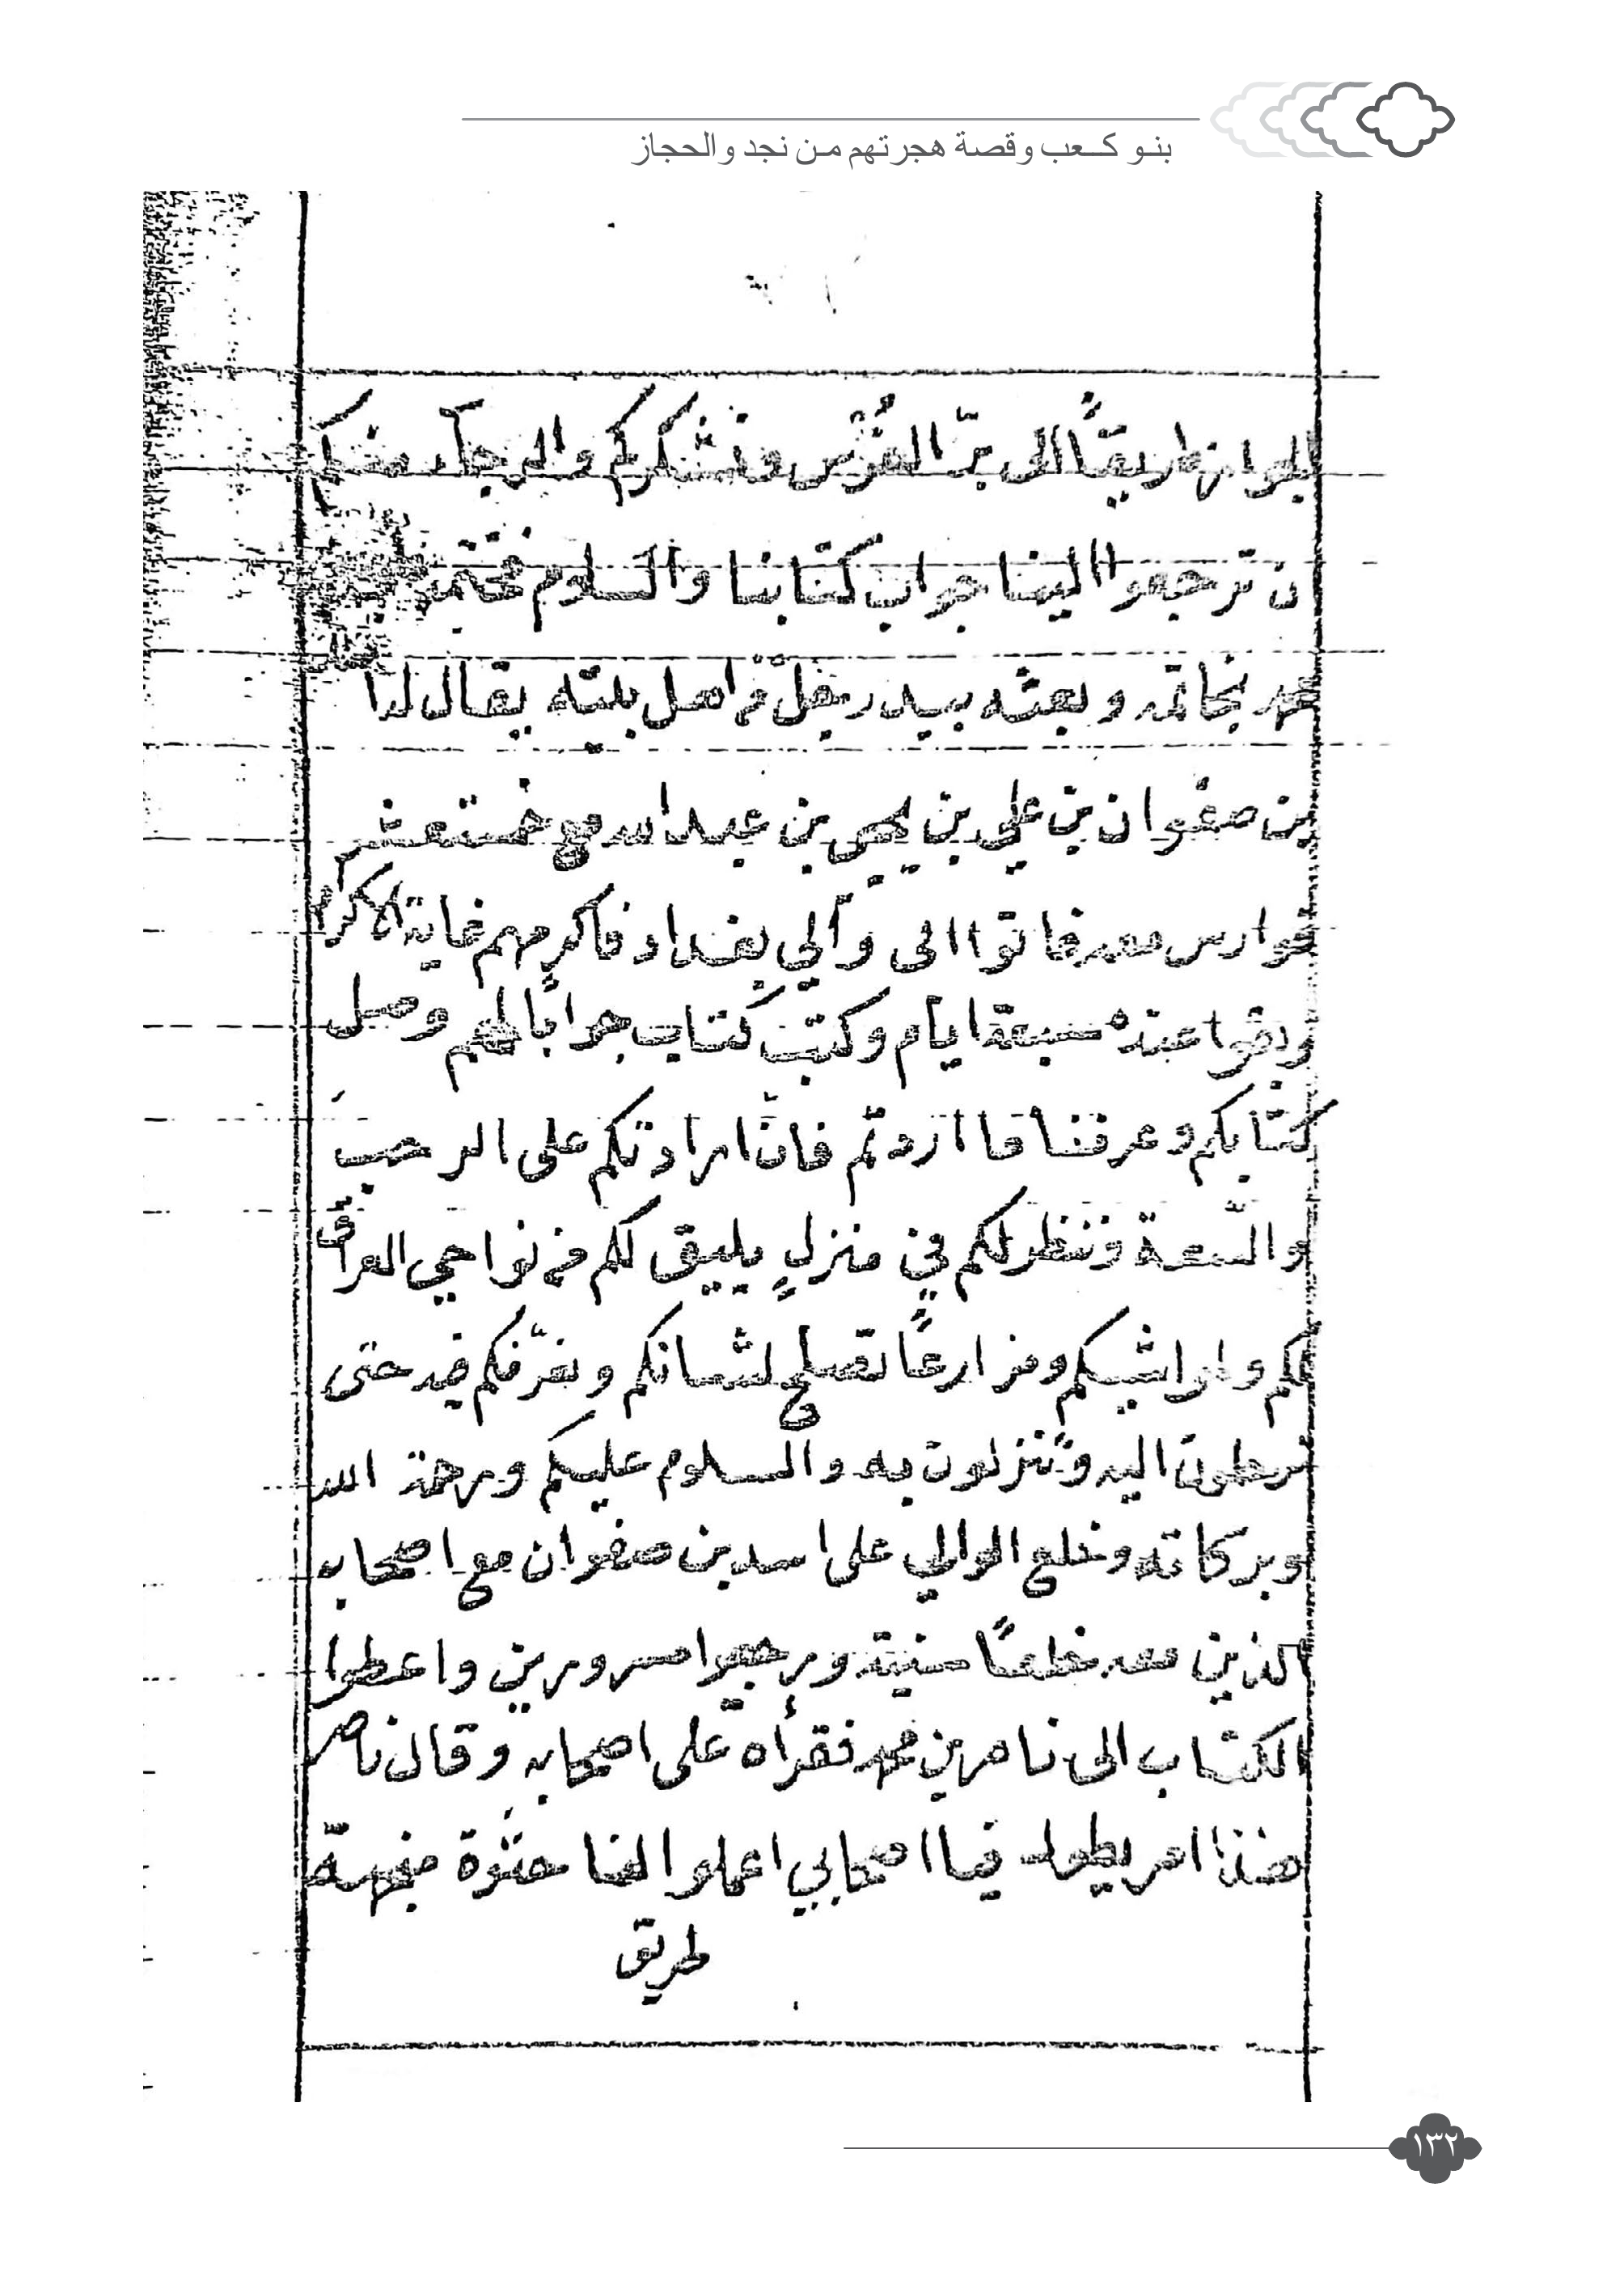 بنو كعب وقصة هجرتهم من نجد والحجاز
طريقًا الى برّ الفُرْس ونشكركم والمرجا منكم
ن ترجعوا الينا جواب كتابنا والسلام فختمه
محمد بخاتمه وبعثه بيد رجلٌ من اهل بيته يقال له
بن صفوان بن علي بن يحيى بن عبدالله مع خمستعشر
فوارس معه فاتوا الى وآلي بغداد فاكرمهم غاية الاكرام
وبقوا عنده سبعة ايام وكتب كتاب جوابًا لهم وصل
كتابكم وعرفنا ما اردتم فانّ ارادتكم على الرحب
والسّعة وننظر لكم في منزلٍ يليق لكم من نواحي العراق
لكم ولمواشيكم ومزارعًا تصلح لشانكم ونعرّفكم فيه حتى
ترحلون اليه وتنزلون به والسلام عليكم ورحمة الله
وبركاته وخلع الوالي على اسد بن صفوان مع اصحابه
الذين معه خلعًا سنية ورجعوا مسرورين واعطوا
الكتاب الى ناصر بن محمد فقرأه على اصحابه وقال ناصر
هذا امر يطول فيا اصحابي اعملوا لنا منجهة
طريق
١٣٢